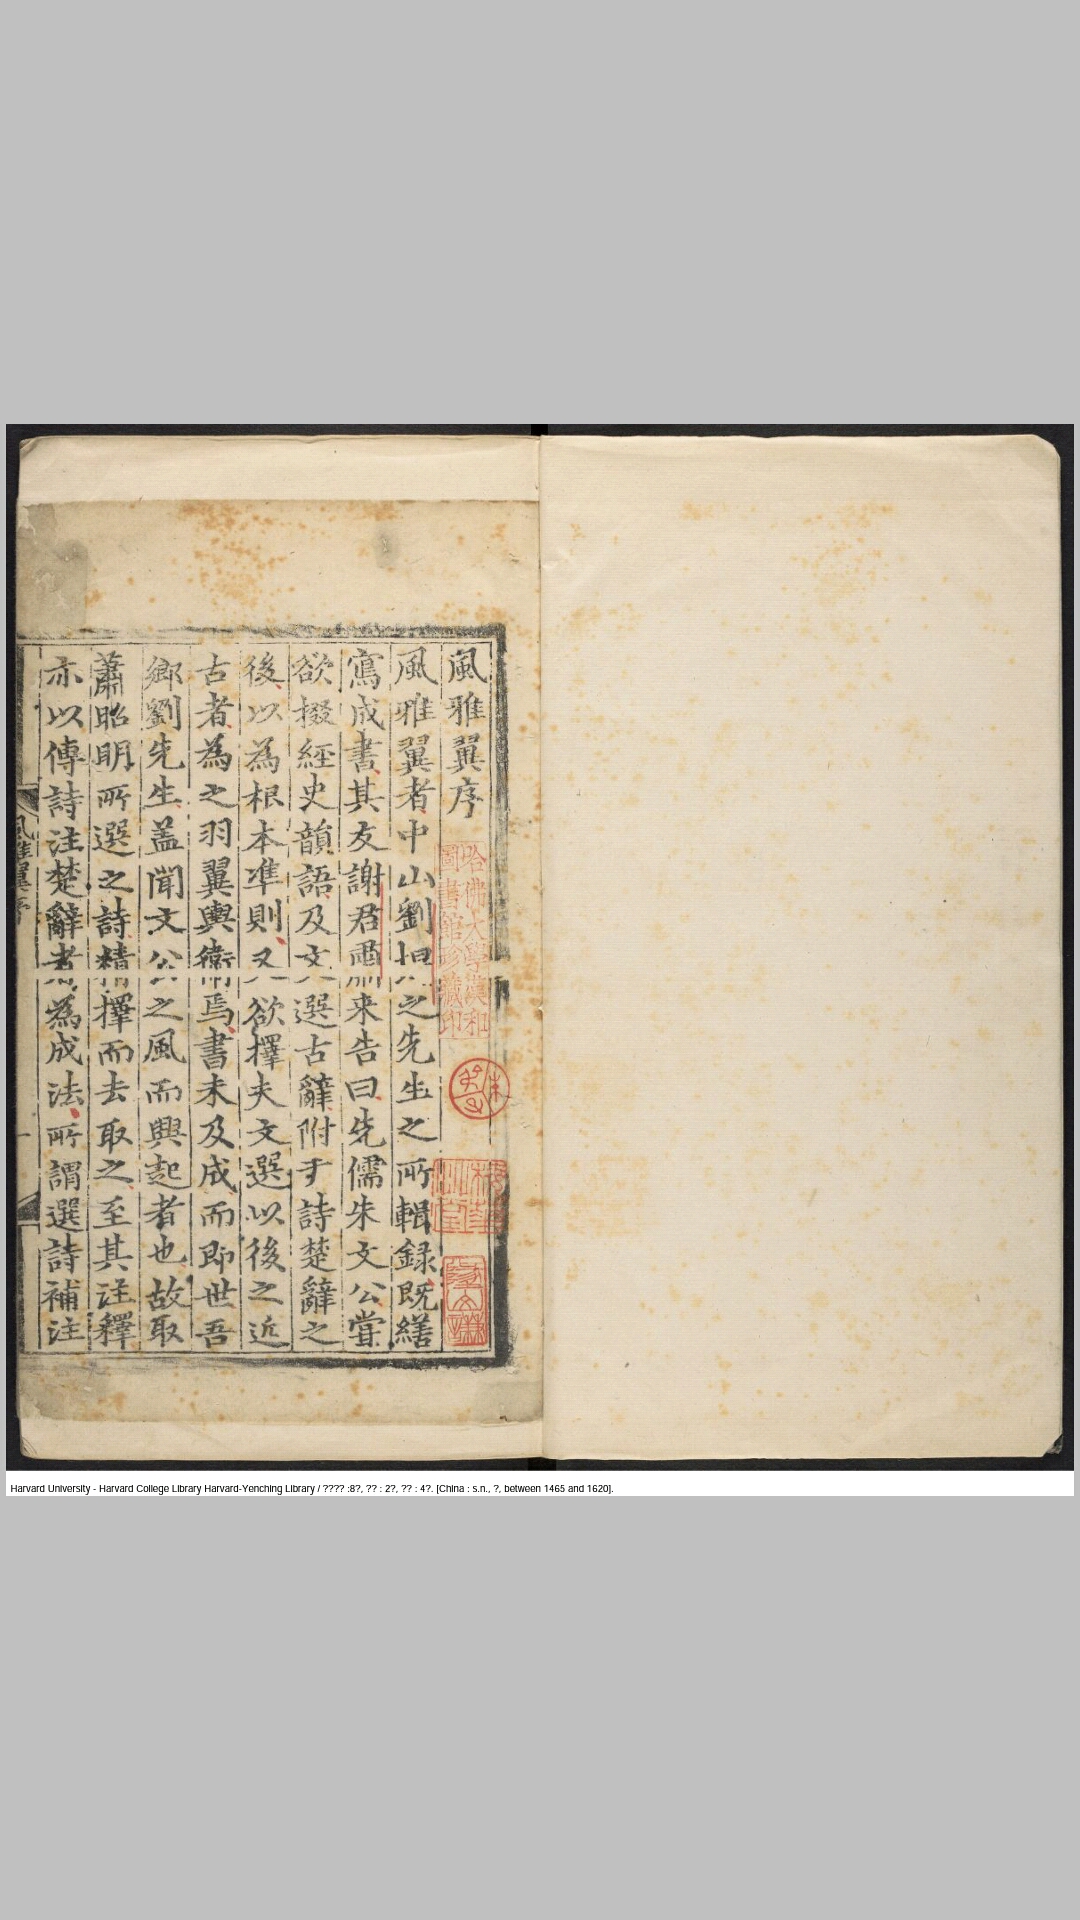 風雅翼序
風雅翼者中山劉坦之先生之所輯録既繕
寫成書其友謝君肅来告曰先儒朱文公嘗
欲掇經史韻語及文選古辭附于詩楚辭之
後以為根本準則又欲擇夫文選以後之近
古者為之羽翼輿衛焉書未及成而即世吾
鄉劉先生盖聞文公之風而興起者也故取
蕭昭明所選之詩精擇而去取之至其註釋
亦以傳詩注楚辭者為成法所謂選詩補注
風雅翼序
哈佛大學漢和
圖書館珍藏印
Harvard University - Harvard College Library Harvard-Yenching Library / ???? :8?, ?? : 2?, ?? : 4?. [China : s.n., ?, between 1465 and 1620].